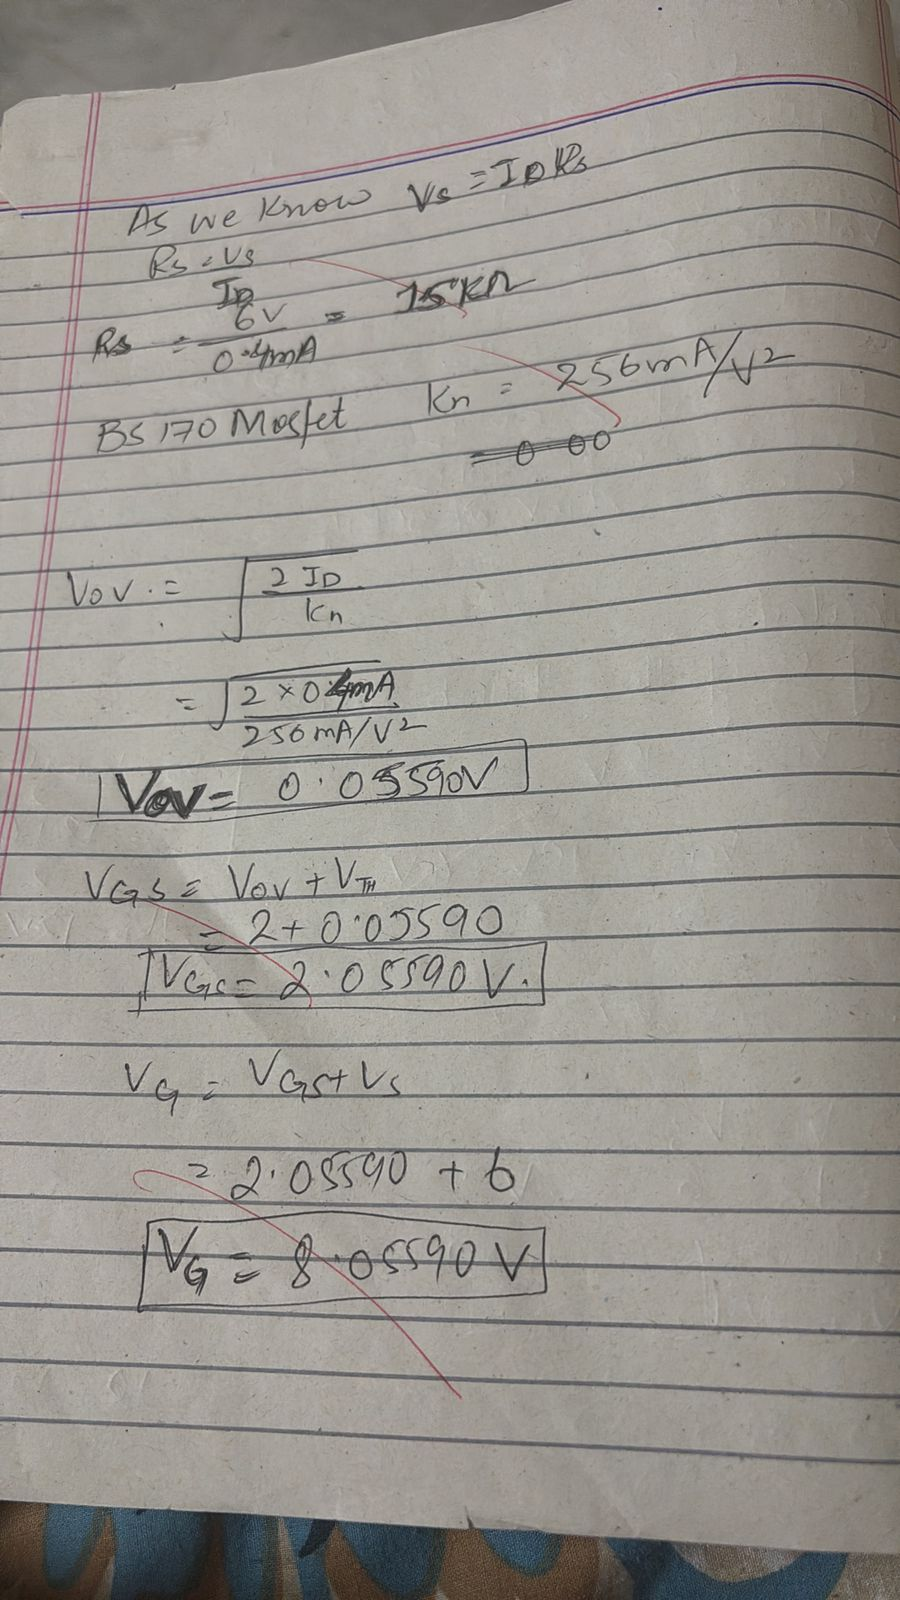 As we know Vs = ID Rs
Rs = Vs
ID
Rs = 6V = 15KΩ
0.4mA
BS170 Mosfet Kn = 256mA/V²
Vov = √ 2 ID
Kn
= √ 2 × 0.4mA
256mA/V²
Vov = 0.05590V
VGS = Vov + VTH
= 2 + 0.05590
VGS = 2.05590 V.
VG = VGS + Vs
= 2.05590 + 6
VG = 8.05590 V